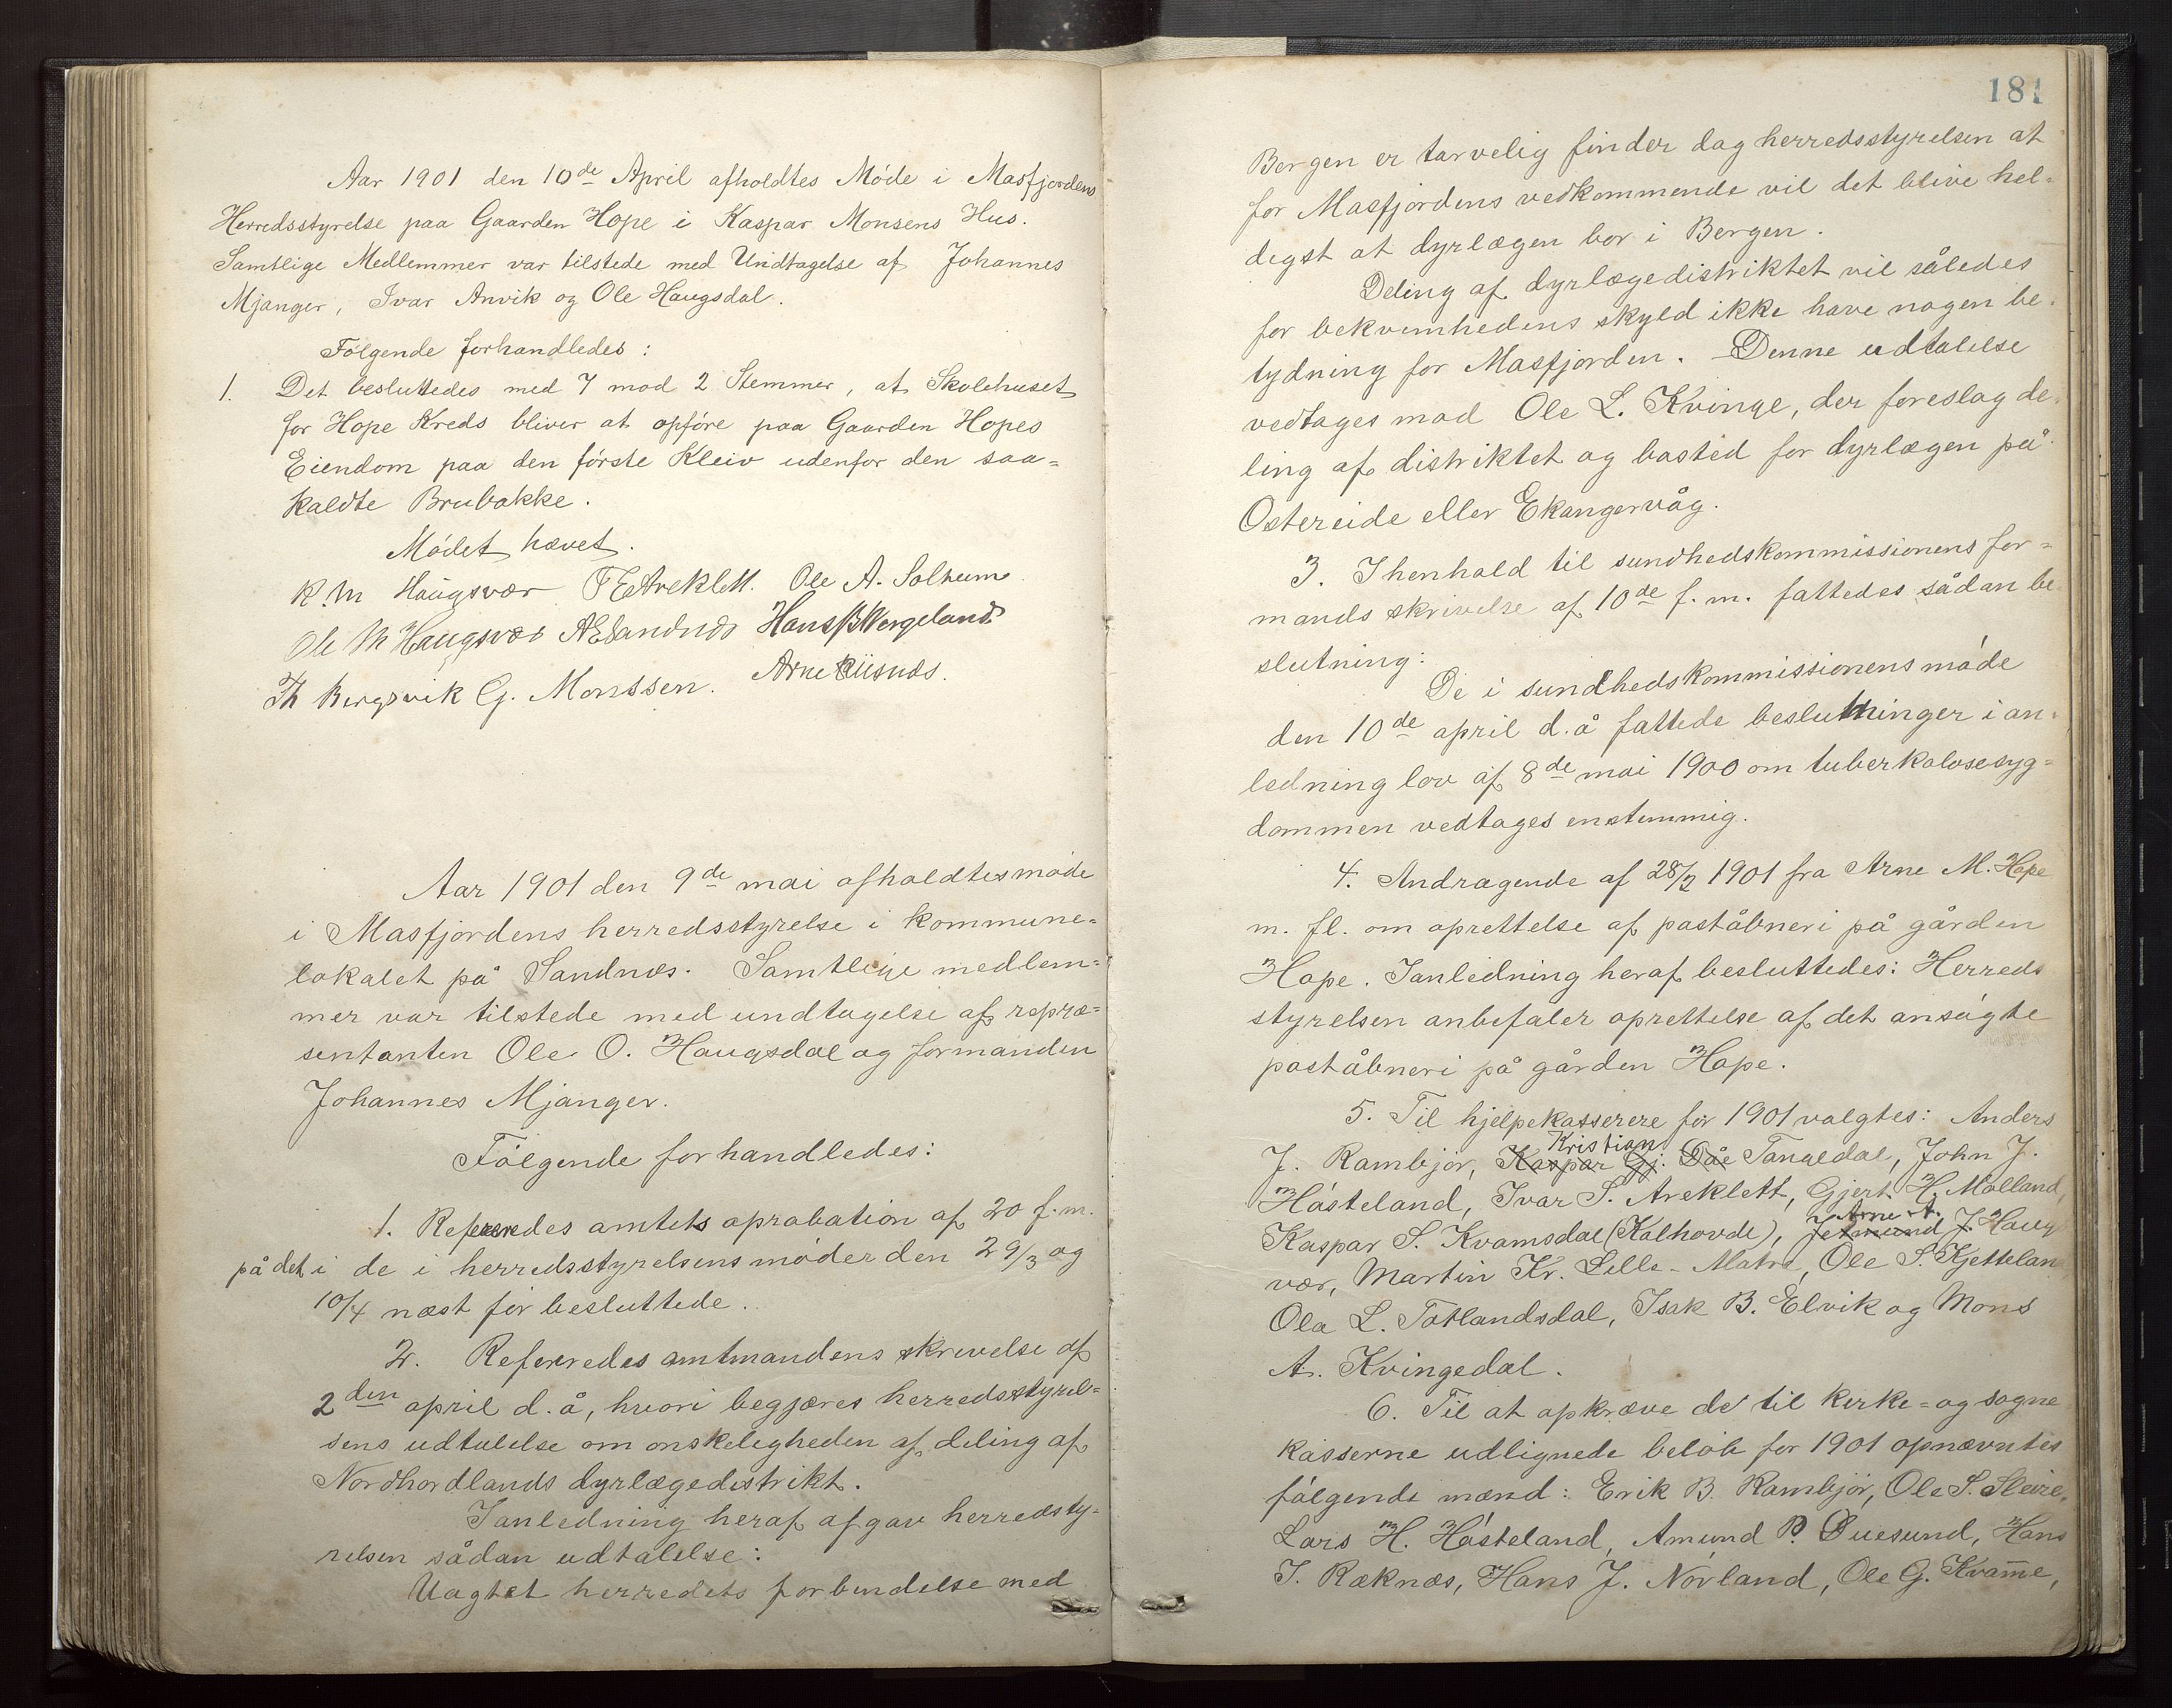 Aar 1901 den 10de April afholdtes Møde i Masfjordens
Herredsstyrelse paa Gaarden Hope i Kaspar Monsens Hus.
Samtlige Medlemmer var tilstede med Undtagelse af Johannes
Mjanger, Ivar Anvik og Ole Haugsdal.
Følgende forhandledes:
1. Det besluttedes med 7 mod 2 Stemmer, at Skolehuset
for Hope Kreds bliver at opføre paa Gaarden Hopes
Eiendom paa den første Kleiv udenfor den saa=
kaldte Brubakke.
Mødet hævet.
K. M Haugsvær T E Areklett. Ole A. Solheim
Ole M Haugsvær A E Sandnæs Hans B Vergeland
Th Bergsvik G. Monssen. Arne Riisnæs.
Aar 1901 den 9de mai afholdtes møde
i Masfjordens herredsstyrelse i kommune=
lokalet på Sandnæs. Samtlige medlem=
mer var tilstede med undtagelse af repræ=
sentanten Ole O. Haugsdal og formanden
Johannes Mjanger.
Følgende forhandledes:
1. Refereredes amtets aprobation af 20 f.m.
på det i de i herredsstyrelsens møder den 29/3 og
10/4 næst før besluttede.
2. Refereredes amtmandens skrivelse af
2den april d.å, hvori begjæres herredsstyrel=
sens udtalelse om ønskeligheden af deling af
Nordhordlands dyrlægedistrikt.
I anledning heraf afgav herredsty=
relsen sådan udtalelse:
Uagtet herredets forbindelse med
181
Bergen er tarvelig finder dog herredsstyrelsen at
for Masfjordens vedkommende vil det blive hel=
digst at dyrlægen bor i Bergen.
Deling af dyrlægedistriktet vil således
for bekvemhedens skyld ikke have nogen be=
tydning for Masfjorden. Denne udtalelse
vedtages mod Ole L. Kvinge, der foreslog de=
ling af distriktet og bosted for dyrlægen på
Ostereide eller Ekangervåg.
3. I henhold til sundhedskommissionens for=
mands skrivelse af 10de f.m. fattedes sådan be
slutning:
De i sundhedskommissionens møde
den 10de april d.å fattede beslutninger i an=
ledning lov af 8de mai 1900 om tuberkolosesyg=
dommen vedtages enstemmig.
4. Andragende af 28/3 1901 fra Arne M. Hope
m. fl. om oprettelse af poståbneri på gården
Hope. I anledning heraf besluttedes: Herreds
styrelsen anbefaler oprettelse af det ansøgte
poståbneri på gården Hope.
5. Til hjelpekasserere for 1901 valgtes: Anders
Kristian
J. Rambjør, Kaspar Gj. Dåe Tangedal, John J.
Høsteland, Ivar S. Areklett, Gjert H. Molland,
Arne A.
Kaspar S. Kvamsdal (Kalhovde), Jetmund J. Haug
vær, Martin Kr. Lille-Matre, Ole S. Kjettelan
Ola L. Totlandsdal, Isak B. Elvik og Mons
A. Kvingedal.
6. Til at opkræve de til kirke= og sogne
kasserne udlignede beløb for 1901 opnævntes
følgende mænd: Erik B. Rambjør, Ole S. Sleire,
Lars H. Høsteland, Amund P. Duesund, Hans
J. Ræknæs, Hans J. Nørland, Ole G. Kvam̅e,